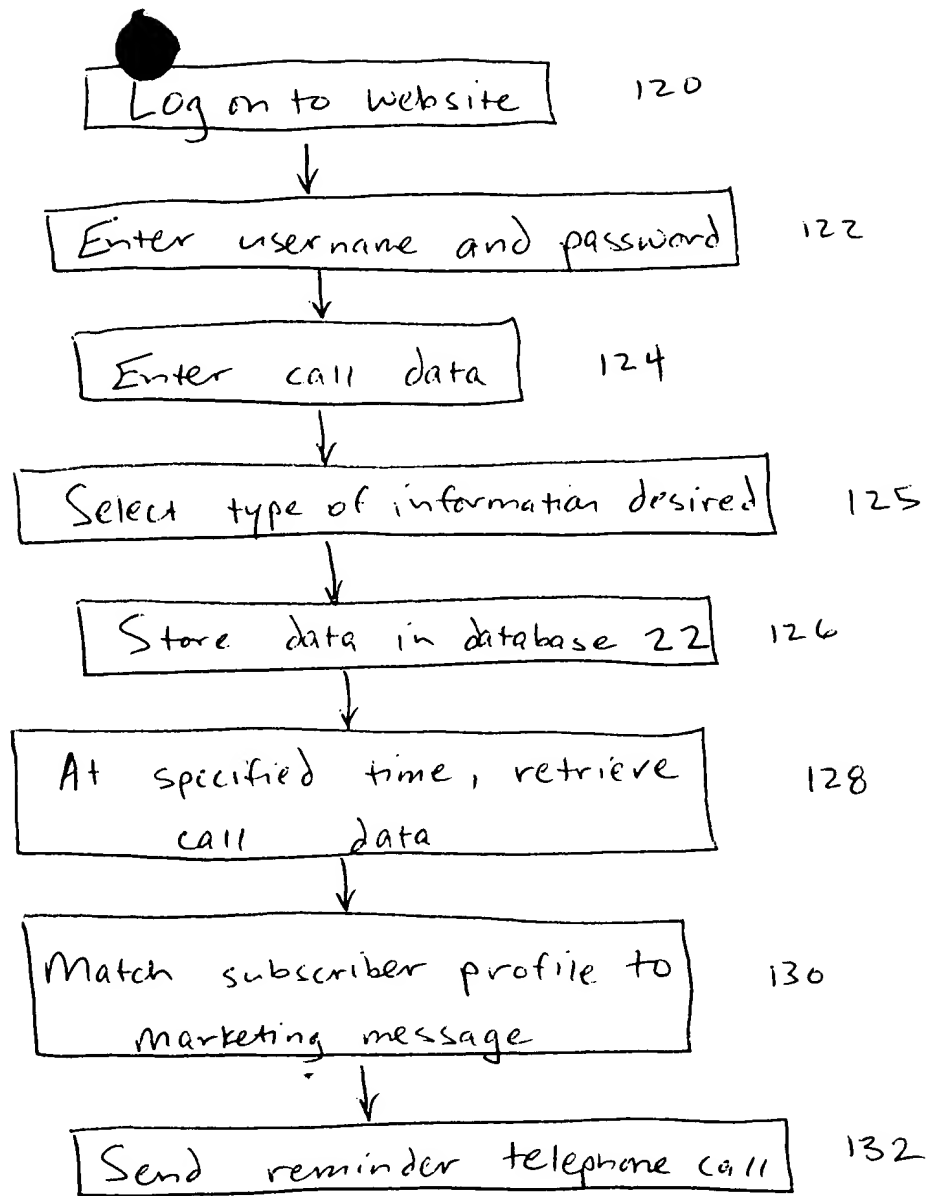 Log on to website 120
Enter username and password 122
Enter call data 124
Select type of information desired 125
Store data in database 22 126
At specified time, retrieve 128
call data
Match subscriber profile to 130
marketing message
Send reminder telephone call 132